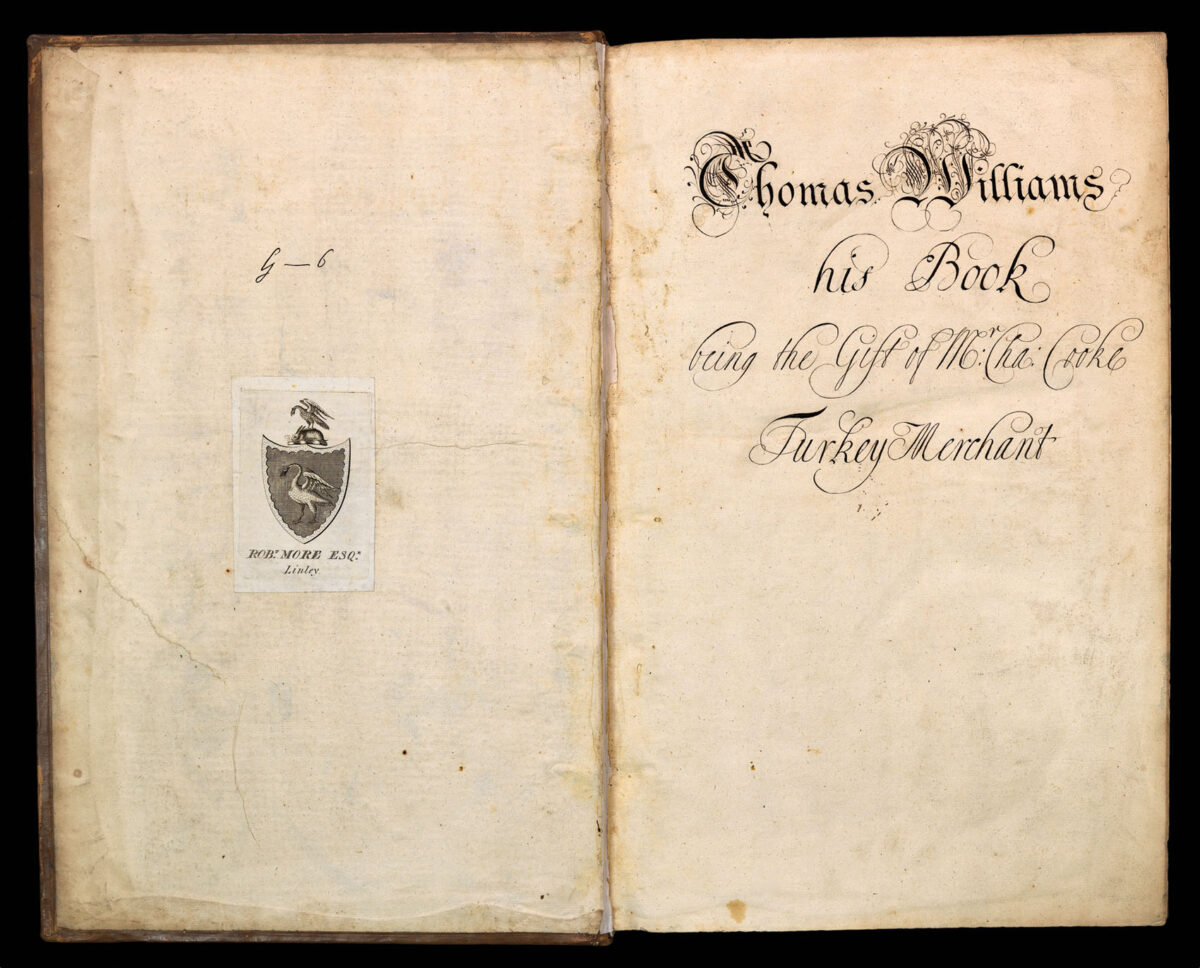 G—6
ROBT. MORE ESQR.
Linley.
Thomas Williams
his Book
being the Gift of Mr. Cha: Cooke
Turkey Merchant